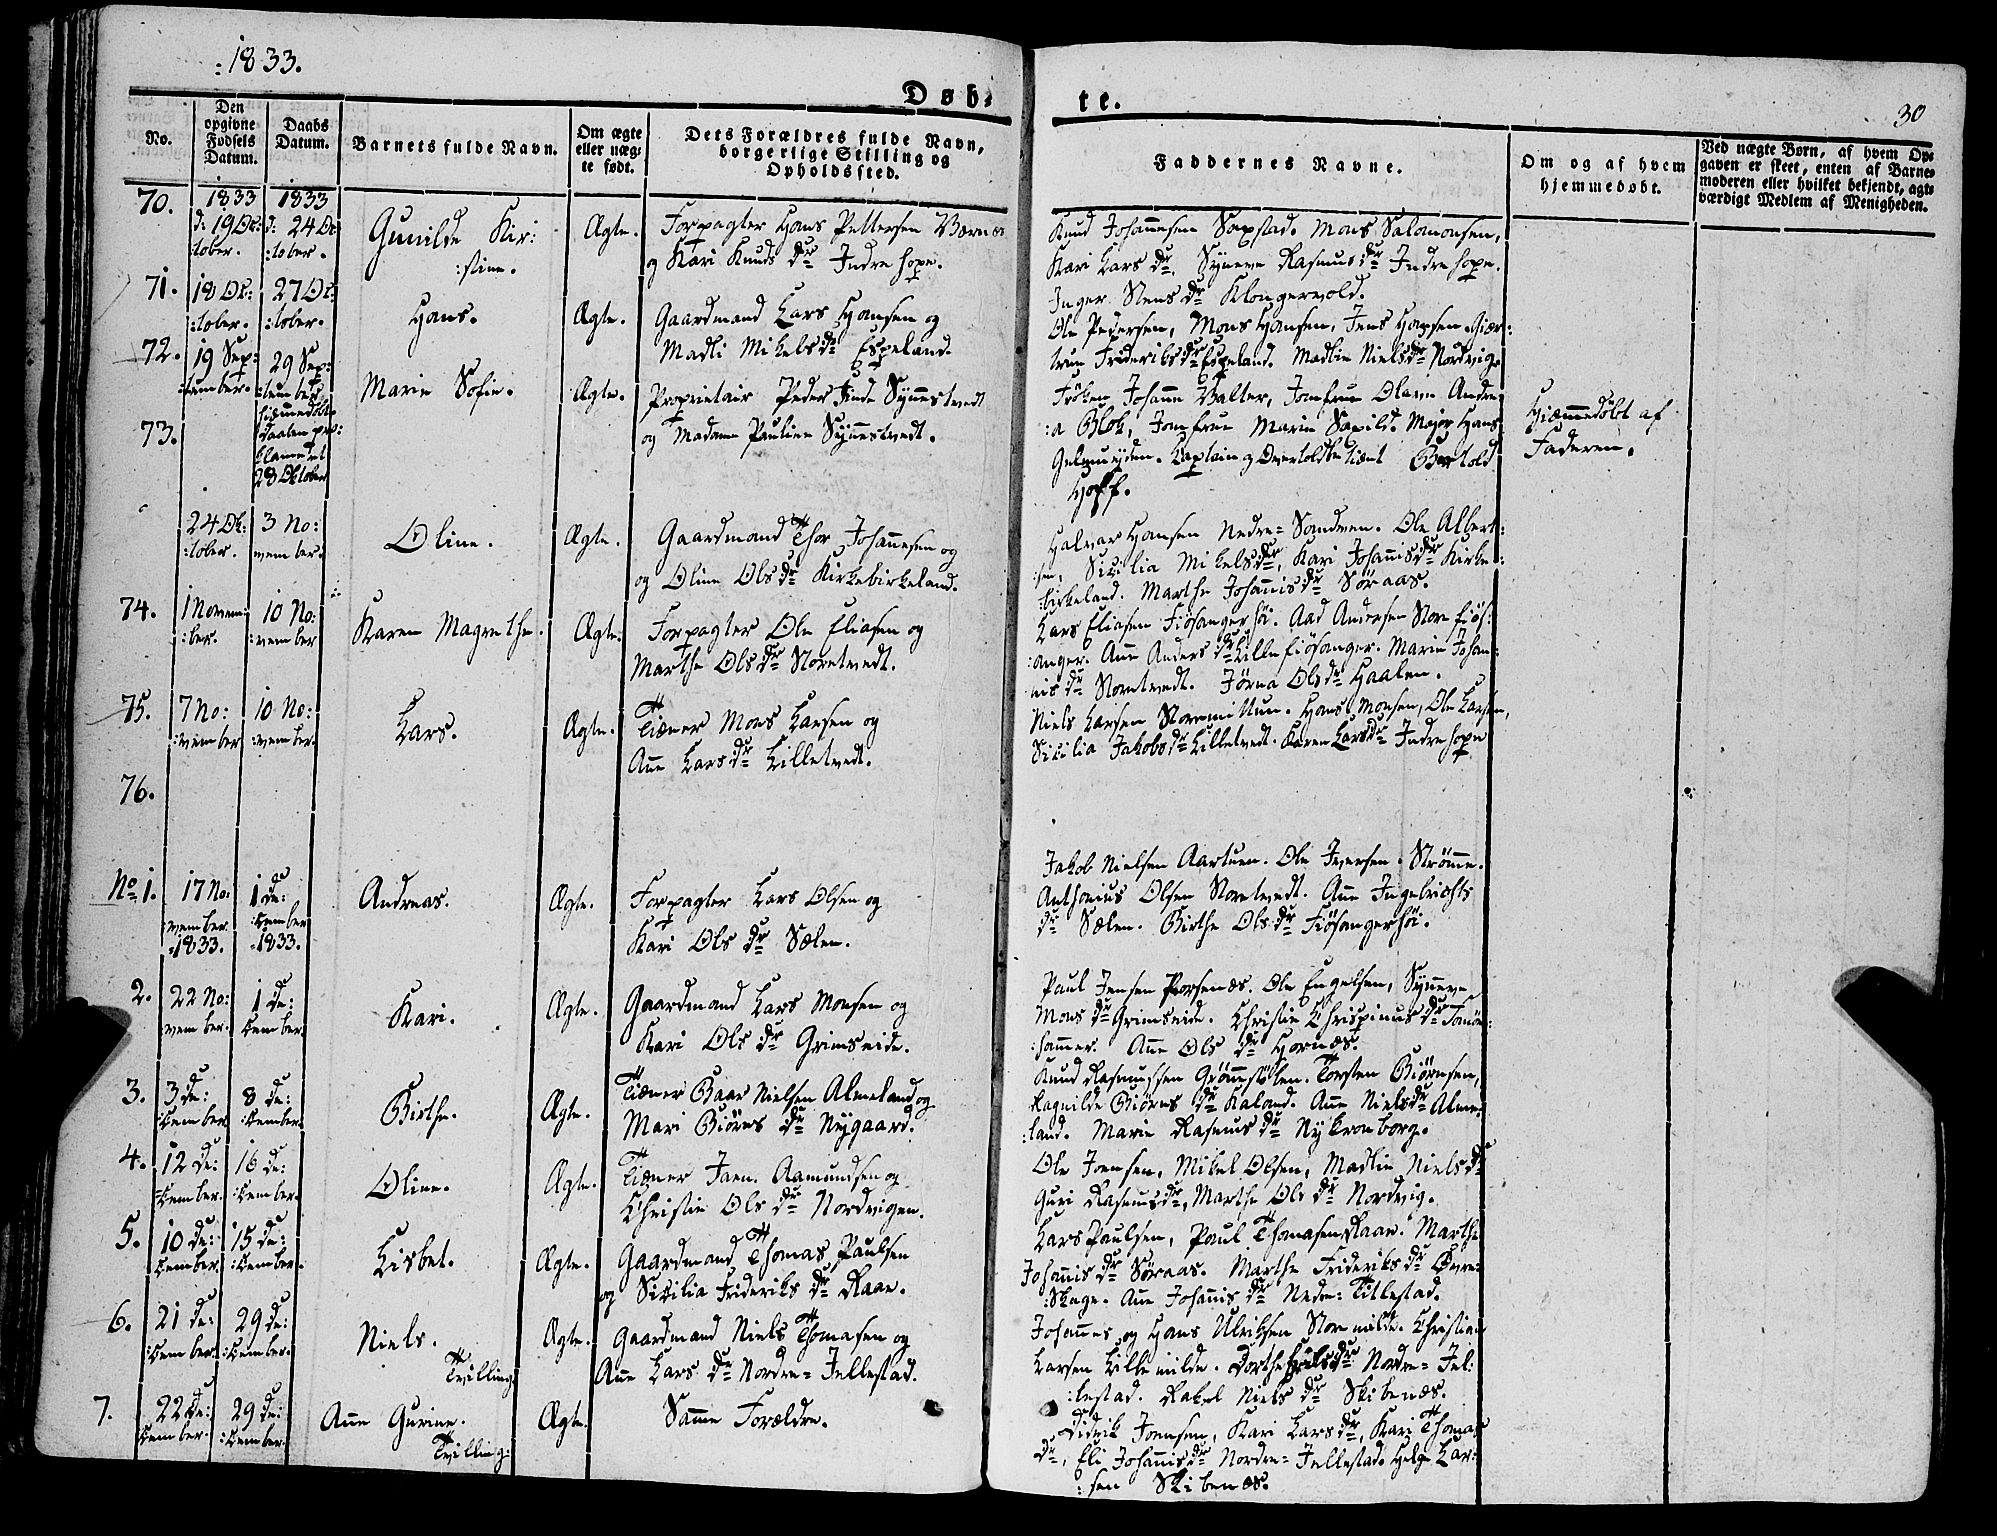 :1833.
Døb-
te.
30
No.
Den
opgivne
Fødsels
Datum.
Daabs
Datum.
Barnets fulde Navn.
Om ægte
eller næg-
te født.
Dets Forældres fulde Navn,
borgerlige Stilling og
Opholdssted.
Faddernes Navne.
Om og af hvem
hjemmedøbt.
Ved nægte Børn, af hvem Op-
gaven er skeet, enten af Barne-
moderen eller hvilket bekjendt, agt-
værdigt Medlem af Menigheden.
70.
1833
d: 19 Oc:
tober.
1833
d: 24 Oc
:tober.
Gunilde Kir:
:stine.
Ægte.
Forpagter Hans Pettersen
og Kari Knuds dr Indre Hope.
Knud Johannesen Saxstad. Mons Salomonsen,
Kari Lars dr, Synneve Rasmus dr Indre Hope.
Inger Stens dr Klongervold.
71.
18 Oc:
:tober.
27 Oc:
:tober.
Hans.
Ægte.
Gaardmand Lars Hansen og
Madli Mikels dr Espeland.
Ole Pedersen, Mons Hansen, Jens Hansen. Giær:
trun Frideriks dr Espeland. Madlin Niels dr Nordvig.
72.
19 Sep:
:tember.
29 Sep:
:tember
hiemmedøbt
Daaben pro:
klameret
28 Oktober
Marie Sofie.
Ægte.
Proprietair Peder Synnestvedt
og Madame Pauline Synnestvedt.
Frøken Johanne Walter, Jomfrue Olava Andre
:a Blok, Jomfrue Marie Major Hans
Gelmeyden. Captain og Overtoldbetient Bertold
Hoff.
Hjemmedøbt af
Faderen.
73.
24 Ok:
:tober.
3 No:
vember.
Oline.
Ægte.
Gaardmand Thor Johannesen og
og Oline Ols dr Kirkebirkeland.
Halvar Hansen Nedre=Sandven. Ole Albert:
:sen, Sicilia Mikels dr, Kari Johannis dr Kirke:
:birkeland. Marthe Johannis dr Søraas.
74.
1 Novem:
:ber.
10 No:
:vember
Karen Magrethe.
Ægte.
Forpagter Ole Eliasen og
Marthe Ols dr Storetvedt.
Lars Eliasen Fiøsangerhøi. Aad Andersen Store fiøs:
:anger. Ane Anders dr Lille fiøsanger. Marie Johan:
nis dr Storetvedt. Jørna Ols dr Haalen.
75.
7 No:
:vember
10 No:
:vember.
Lars.
Ægte.
Tiæner Mons Larsen og
Ane Lars dr Lilletvedt.
Niels Larsen Storemiltun. Hans Monsen, Ole Larsen,
Sicilia Jakobs dr Lilletvedt. Karen Lars dr Indre Hope
76.
No 1.
17 No:
vember
:1833.
1 De:
:cember
:1833.
Andreas.
Ægte.
Forpagter Lars Olsen og
Kari Ols dr Sælen.
Jakob Nielsen Aartuen. Ole Iversen Strømme.
Anthonius Olsen Storetvedt. Ane Ingebrichts
dr Sælen. Birthe Ols dr Fiøsangerhøi.
2.
22 No:
vember.
1 De:
cember
Kari.
Ægte.
Gaardmand Lars Monsen og
Kari Ols dr Grimseide.
Paul Jensen Ole Engelsen, Synneve
Mons dr Grimseide. Christie Chrispinus dr
:hammer. Ane Ols dr Hornæs.
3.
3 De:
:cember
8 De:
:cember.
Birthe.
Ægte.
Tiæner Baar Nielsen Almeland og
Mari Biørns dr Nygaard.
Knud Rasmussen Grønnestølen. Torsten Biørnsen,
Ragnilde Biørns dr Kaland. Ane Niels dr Alme
:land. Marie Rasmus dr Nykronborg.
4.
12 De:
:cember.
16 De:
:cember.
Oline.
Ægte.
Tiæner Joen Aamundsen og
Christie Ols dr Nordvigen.
Ole Joensen, Mikel Olsen, Madlin Niels dr
Guri Rasmus dr, Marthe Ols dr Nordvig.
5.
10 De:
cember
15 De:
:cember.
Lisbet.
Ægte.
Gaardmand Thomas Paulsen
og Sicilia Frideriks dr Raae.
Lars Paulsen, Paul Thomasen Raae. Marthe
Johannis dr Søraas. Marthe Frideriks dr Øvre=
:Skage. Ane Johannis dr Nedre=Tittestad.
6.
21 De:
:cember.
29 De:
:cember.
Niels.
Tvilling
Ægte.
Gaardmand Niels Thomasen og
Ane Lars dr Nordre=Jellestad.
Johannes og Hans Ulriksen Store milde. Christian
Larsen Lille milde. Dorthe dr Nordre=Jel:
:lestad. Rakel Niels dr Skibenæs.
7.
22 De:
cember.
29 De:
:cember.
Ane Gurine.
Tvilling
Ægte.
Samme Forældre.
Didrik Joensen, Kari Lars dr, Kari Thomas
dr, Eli Johannis dr Nordre=Jellestad. Helge Lar:
:sen Skibenæs.